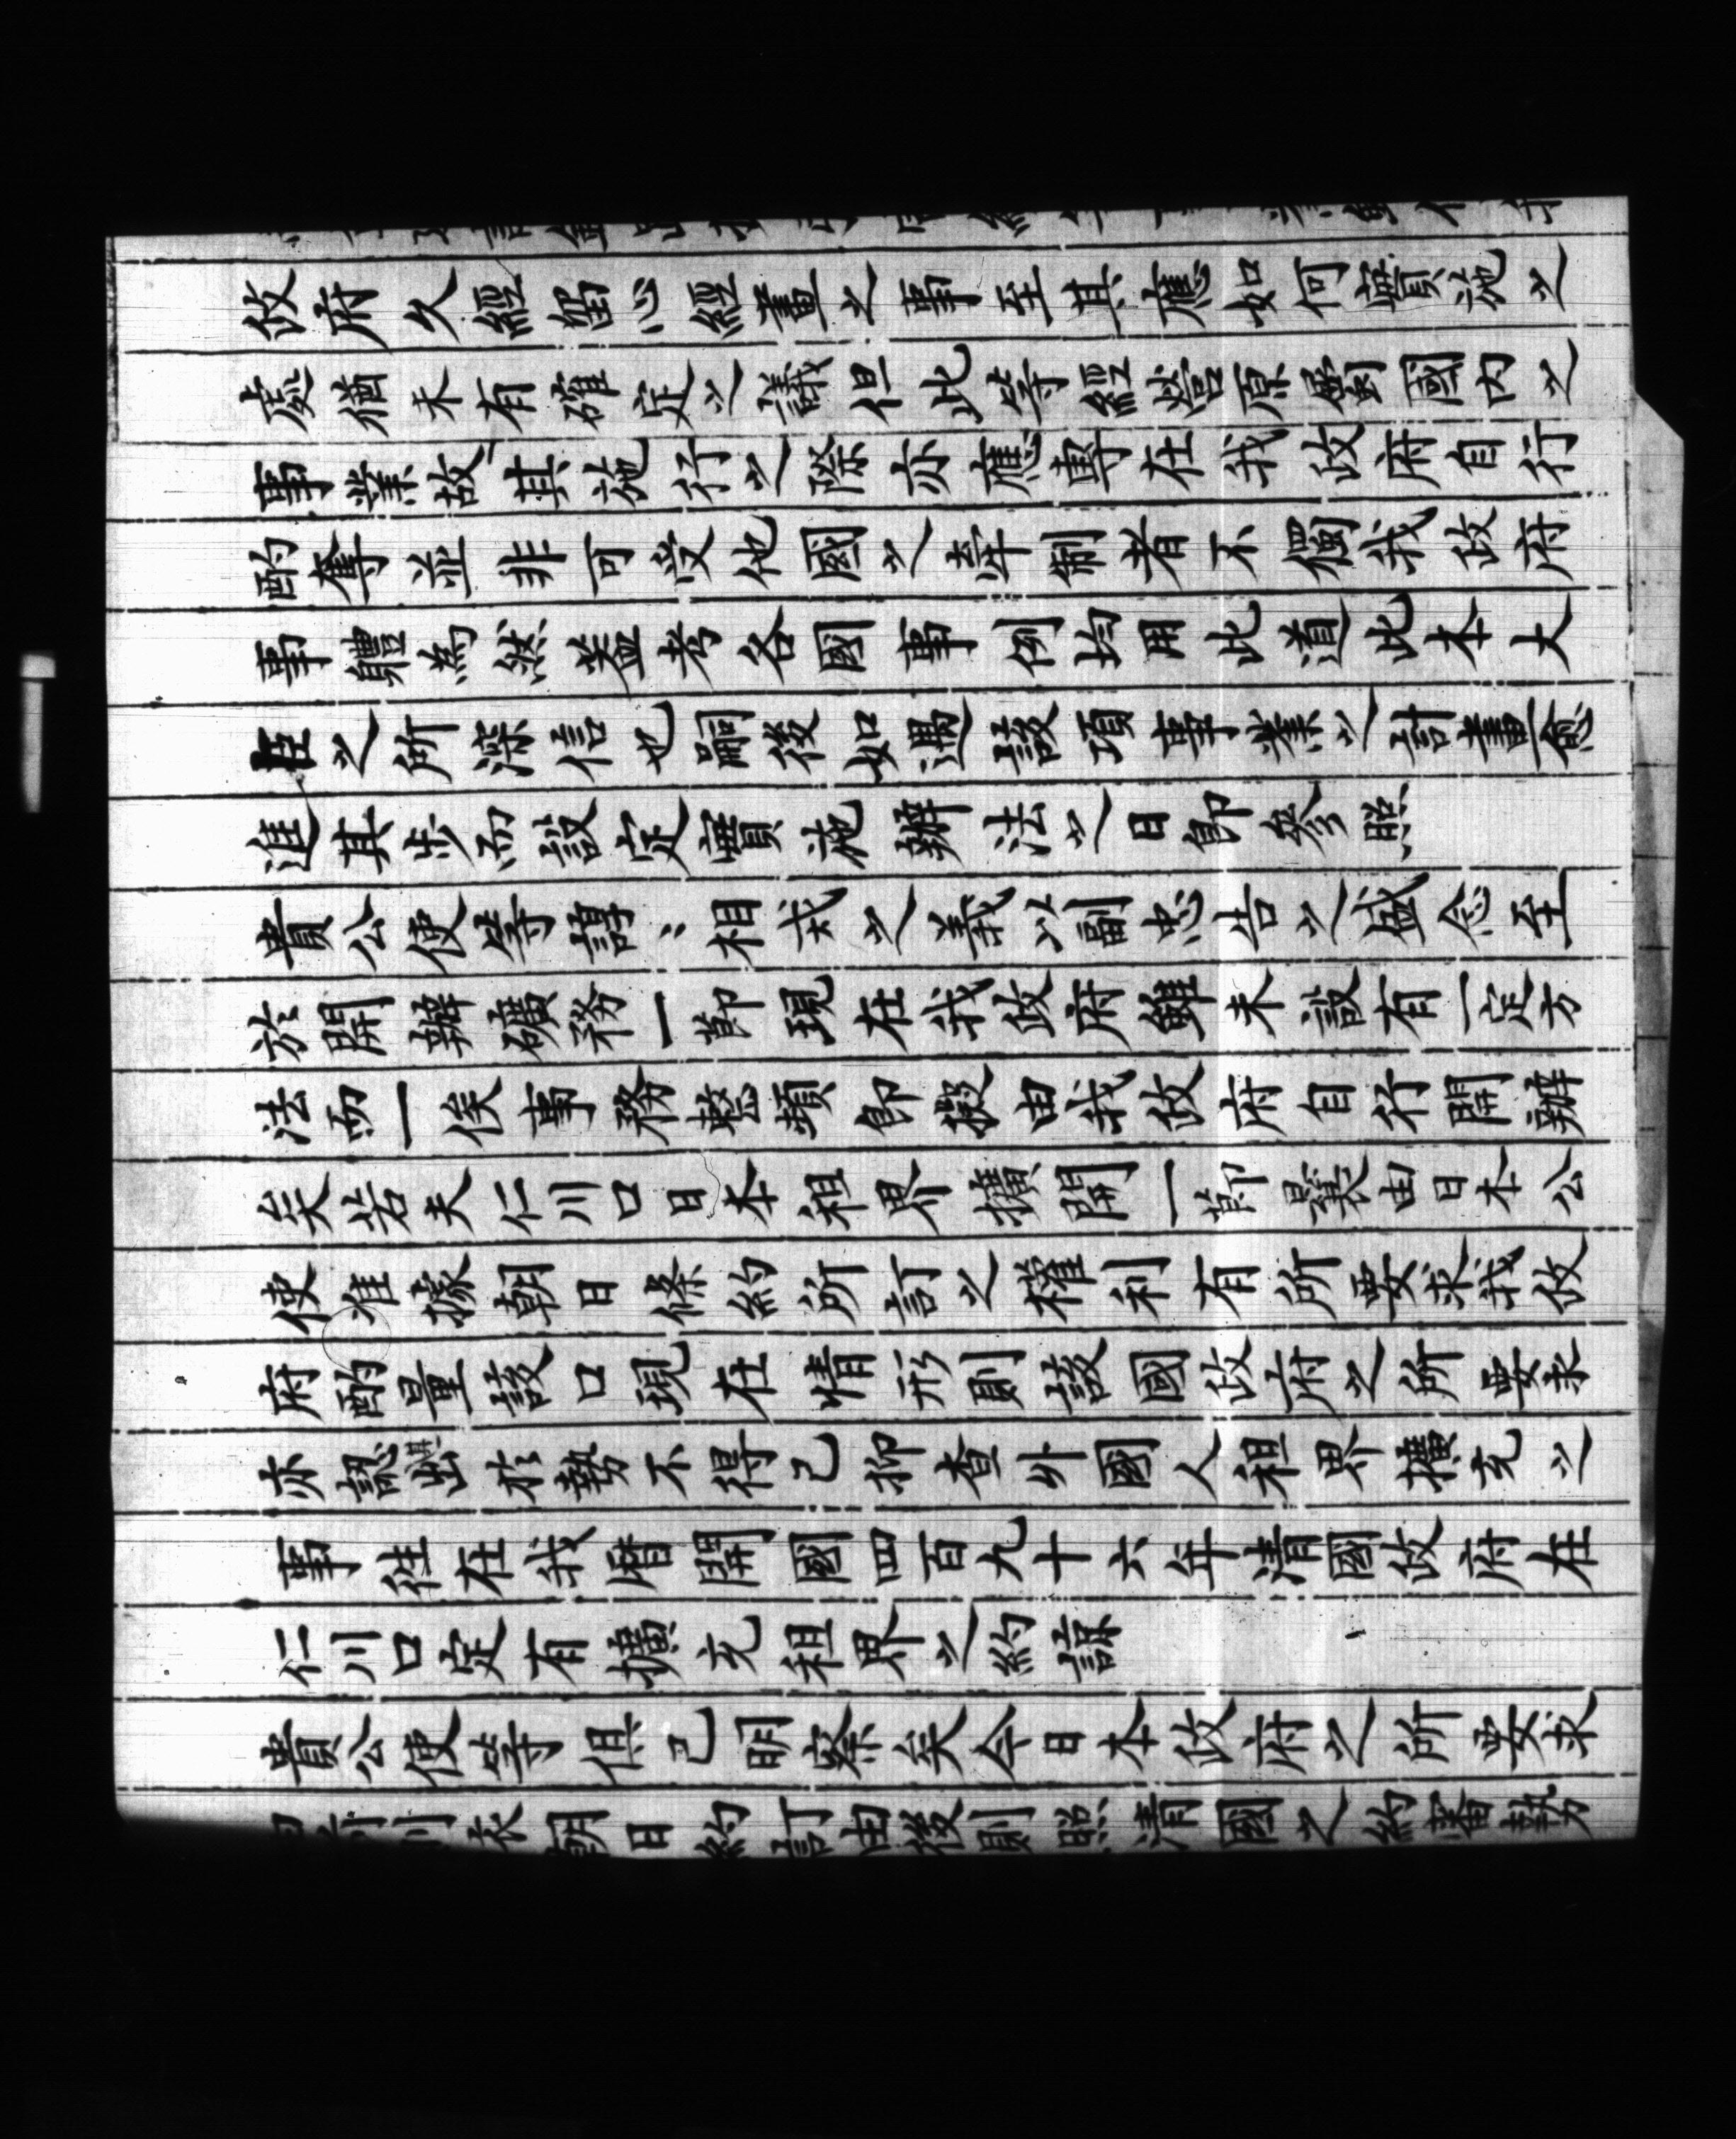 政府久經留心經畫之事至其應如何實施之
處猶未有確定之議但此等經營原屬國內之
事業故其施行之際亦應專在我政府自行
酌奪並非可受他國之牽制者不獨我政府
事體為然蓋考各國事例均用此道此本大
臣之所深信也嗣後如遇該項事業之計畫愈
進其步而設定實施辦法之日即參照
貴公使等諄〻相戒之義以副忠告之盛念至
於開辦礦務一節現在我政府雖未設有一定方
法而一俟事務整頓即擬由我政府自行開辦
矣若夫仁川口日本租界擴開一節曩由日本公
使准據朝日條約所訂之權利有所要求我政
府酌量該口現在情形則該國政府之所要求
亦認其出於勢不得已抑查外國人租界擴充之
事往在我曆開國四百九十六年清國政府在
仁川口定有擴充租界之約諒
貴公使等俱已明察矣今日本政府之所要求
日約訂由後則照清國之約審勢